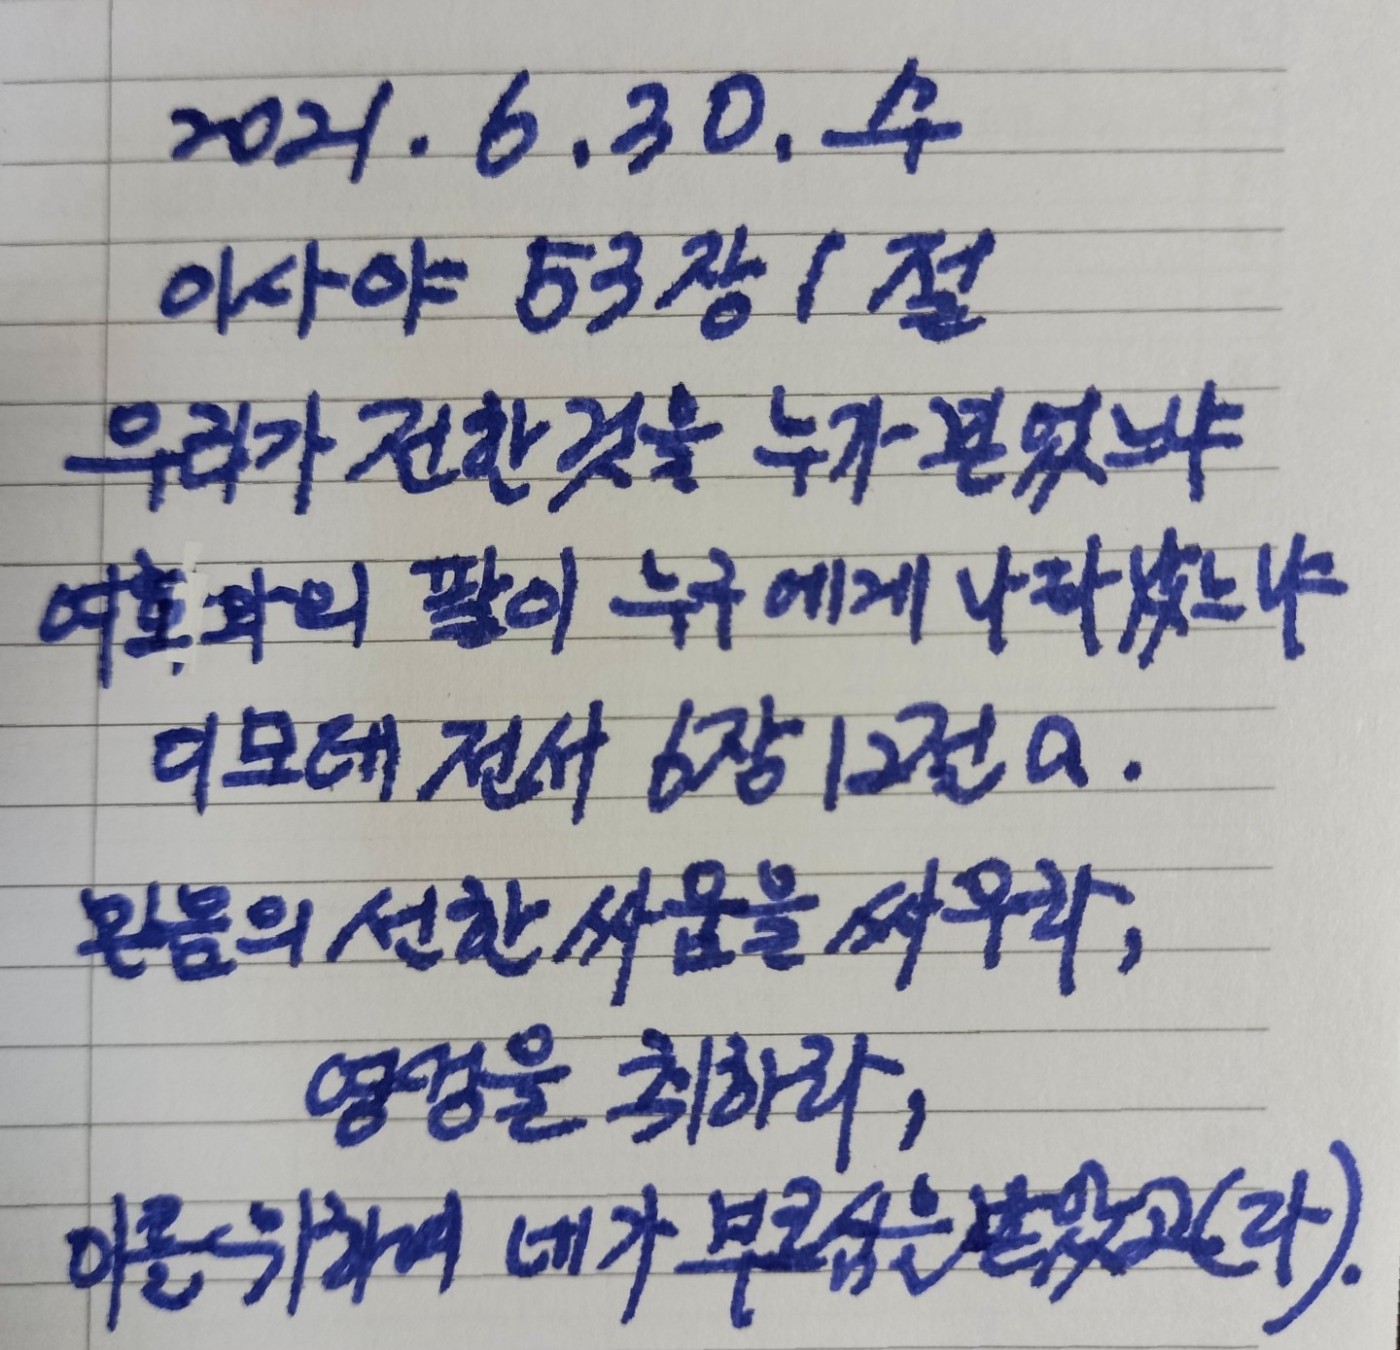 2021. 6. 30. 수
이사야 53장 1절
우리가 전한것을 누가 믿었느냐
여호와의 팔이 누구에게 나타났느냐
디모데 전서 6장 12절 a.
믿음의 선한 싸움을 싸우라,
영생을 취하라,
이를 위하여 네가 부르심을 받았고(라).